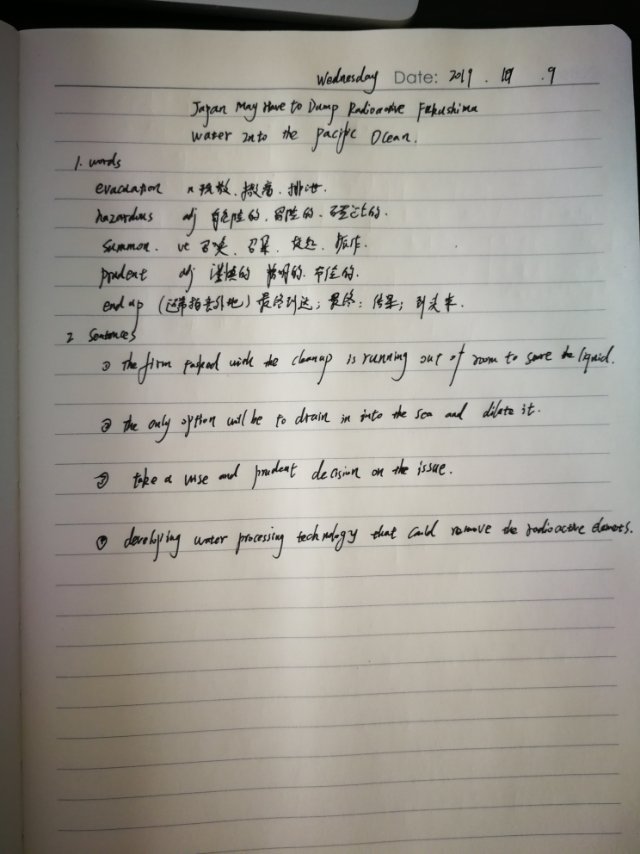 Wednesday Date: 2019 . 10 . 9
Japan May Have to Dump Radioactive Fukushima
Water Into the Pacific Ocean.
1. words
evacuation n 疏散、撤离、排泄.
hazardous adj 有危险的、冒险的、碰运气的.
Summon. vt 召唤、召集、
prudent adj 谨慎的 精明的、节俭的.
end up (通常指意外地) 最终到达; 最终; 结果; 到头来.
2 Sentences
① the firm tasked with the cleanup is running out of room to store the liquid.
② the only option will be to drain in into the sea and dilute it.
③ take a wise and prudent decision on the issue.
④ developing water processing technology that could remove the radioactive elements.